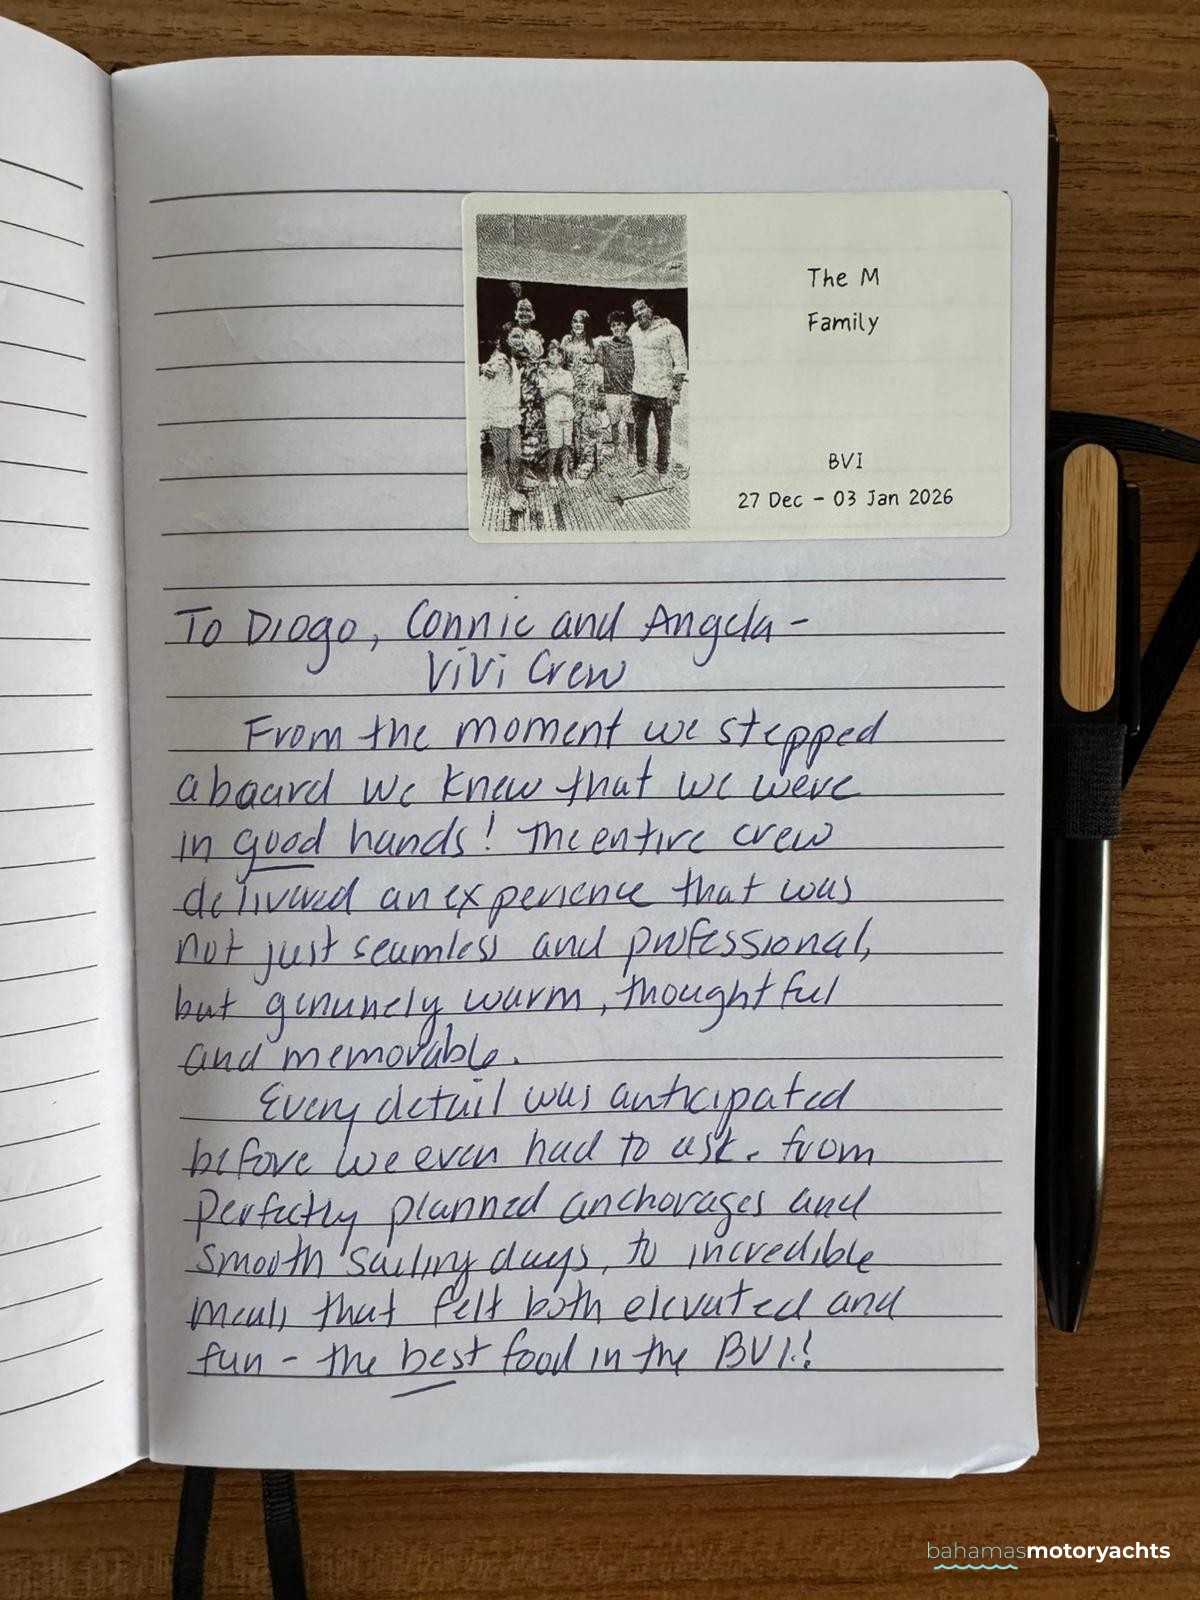 The M
Family
BVI
27 Dec - 03 Jan 2026
To Diogo, Connie and Angela -
ViVi Crew
From the moment we stepped
aboard we knew that we were
in good hands! The entire crew
delivered an experience that was
not just seamless and professional,
but genuinely warm, thoughtful
and memorable.
Every detail was anticipated
before we even had to ask. From
perfectly planned anchorages and
smooth sailing days, to incredible
meals that felt both elevated and
fun - the best food in the BVI!!
bahamasmotoryachts